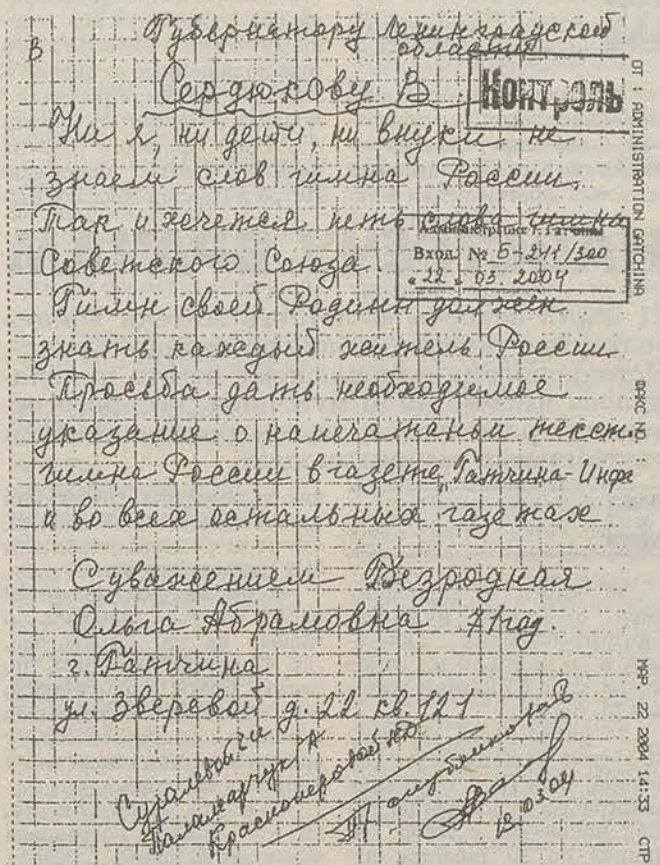 В Губернатору Ленинградской
области
Сердюкову В
Контроль
Ни я, ни дети, ни внуки не
знаем слов гимна России.
Так и хочется петь слова гимна
Советского Союза.
Администрация г. Гатчина
Вход. № Б-241/300
"22" 03 2004
Гимн своей Родины должен
знать каждый житель России
Просьба дать необходимое
указание о напечатаньи текст
гимна России в газете "Гатчина-Инфо
и во всех остальных газетах
С уважением Безродная
Ольга Абрамовна 71 год.
г. Гатчина
ул. Зверевой д. 22 кв. 121
Паламарчук А
Красноперовой
Пр. опубликовать
03 04
ОТ : ADMINISTRATION GATCHINA
ФАКС NO. :
МАР. 22 2004 14:33
СТР